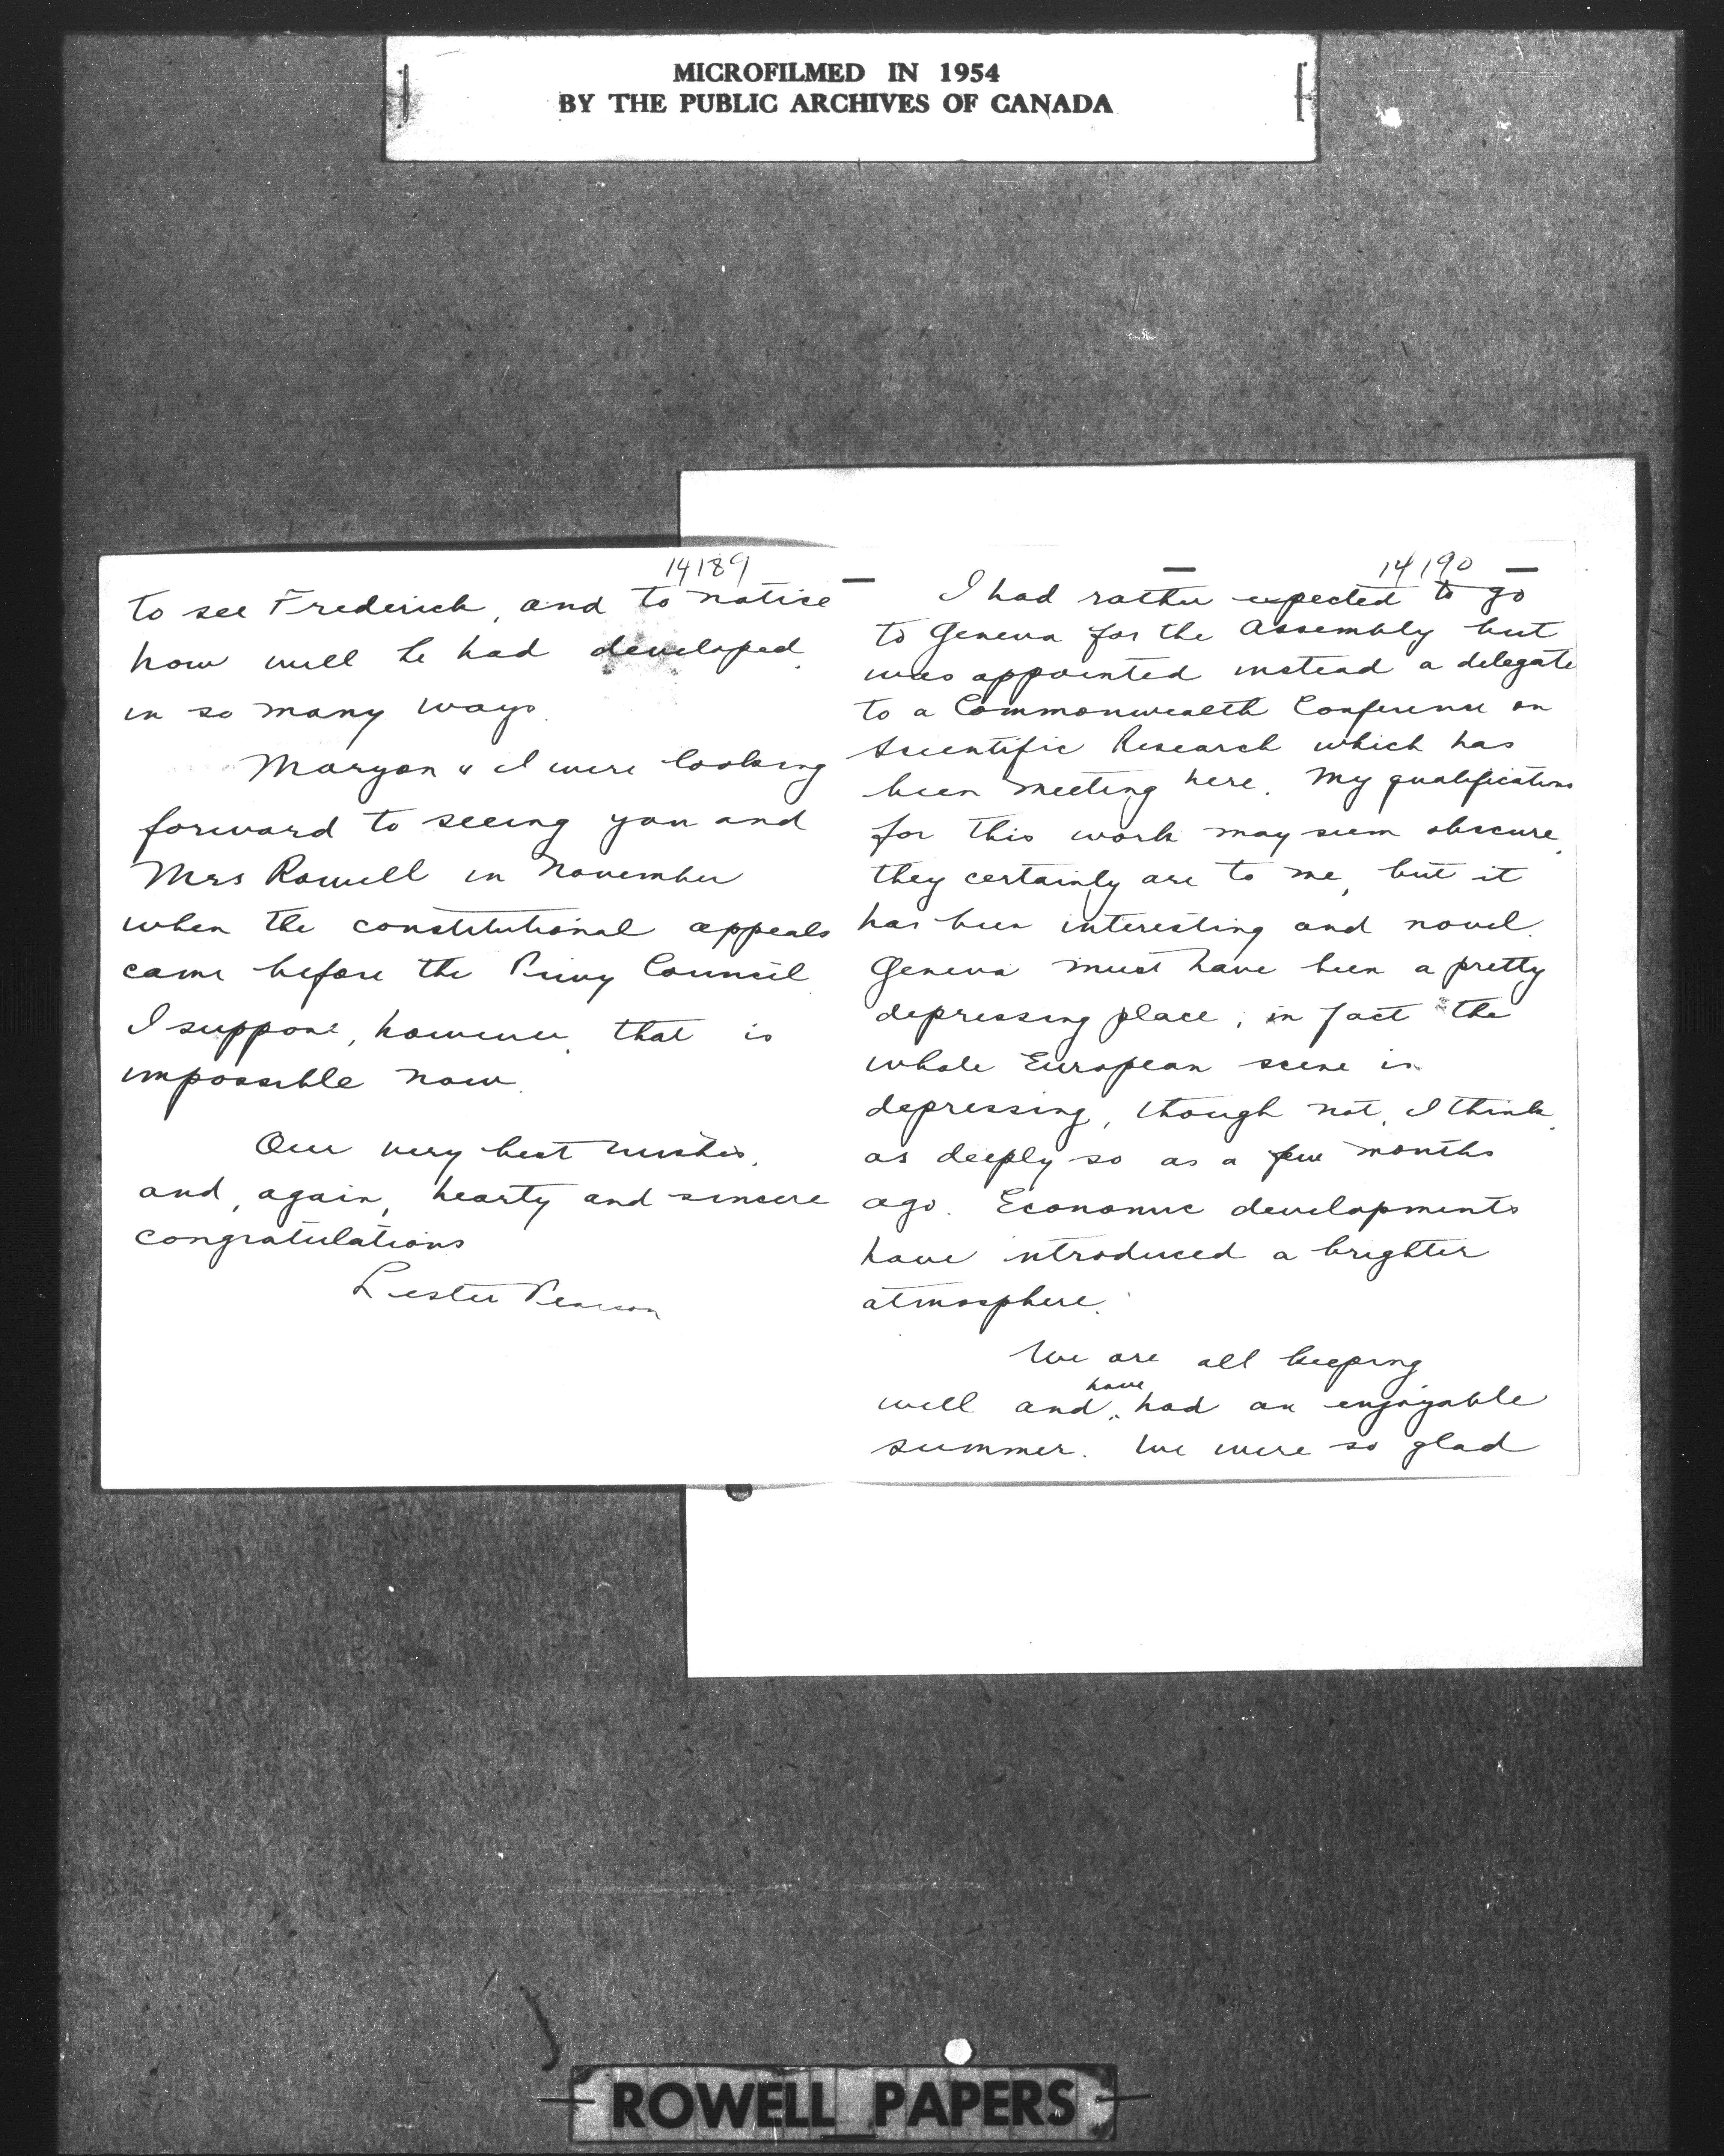 MICROFILMED IN 1954
BY THE PUBLIC ARCHIVES OF CANADA
14189
to see Frederick, and to notice
how well he had developed
in so many ways.
Maryon & I were looking
forward to seeing you and
Mrs Rowell in November
when the constitutional appeals
came before the Privy Council.
I suppose, however, that is
impossible now.
Our very best wishes,
and, again, hearty and sincere
congratulations
Lester Pearson
14190
I had rather expected to go
to Geneva for the Assembly but
was appointed instead a delegate
to a Commonwealth Conference on
Scientific Research which has
been meeting here. My qualifications
for this work may seem obscure,
they certainly are to me, but it
has been interesting and novel.
Geneva must have been a pretty
depressing place, in fact the
whole European scene is
depressing, though not, I think,
as deeply so as a few months
ago. Economic developments
have introduced a brighter
atmosphere.
We are all keeping
have
well and had an enjoyable
summer. We were so glad
ROWELL PAPERS